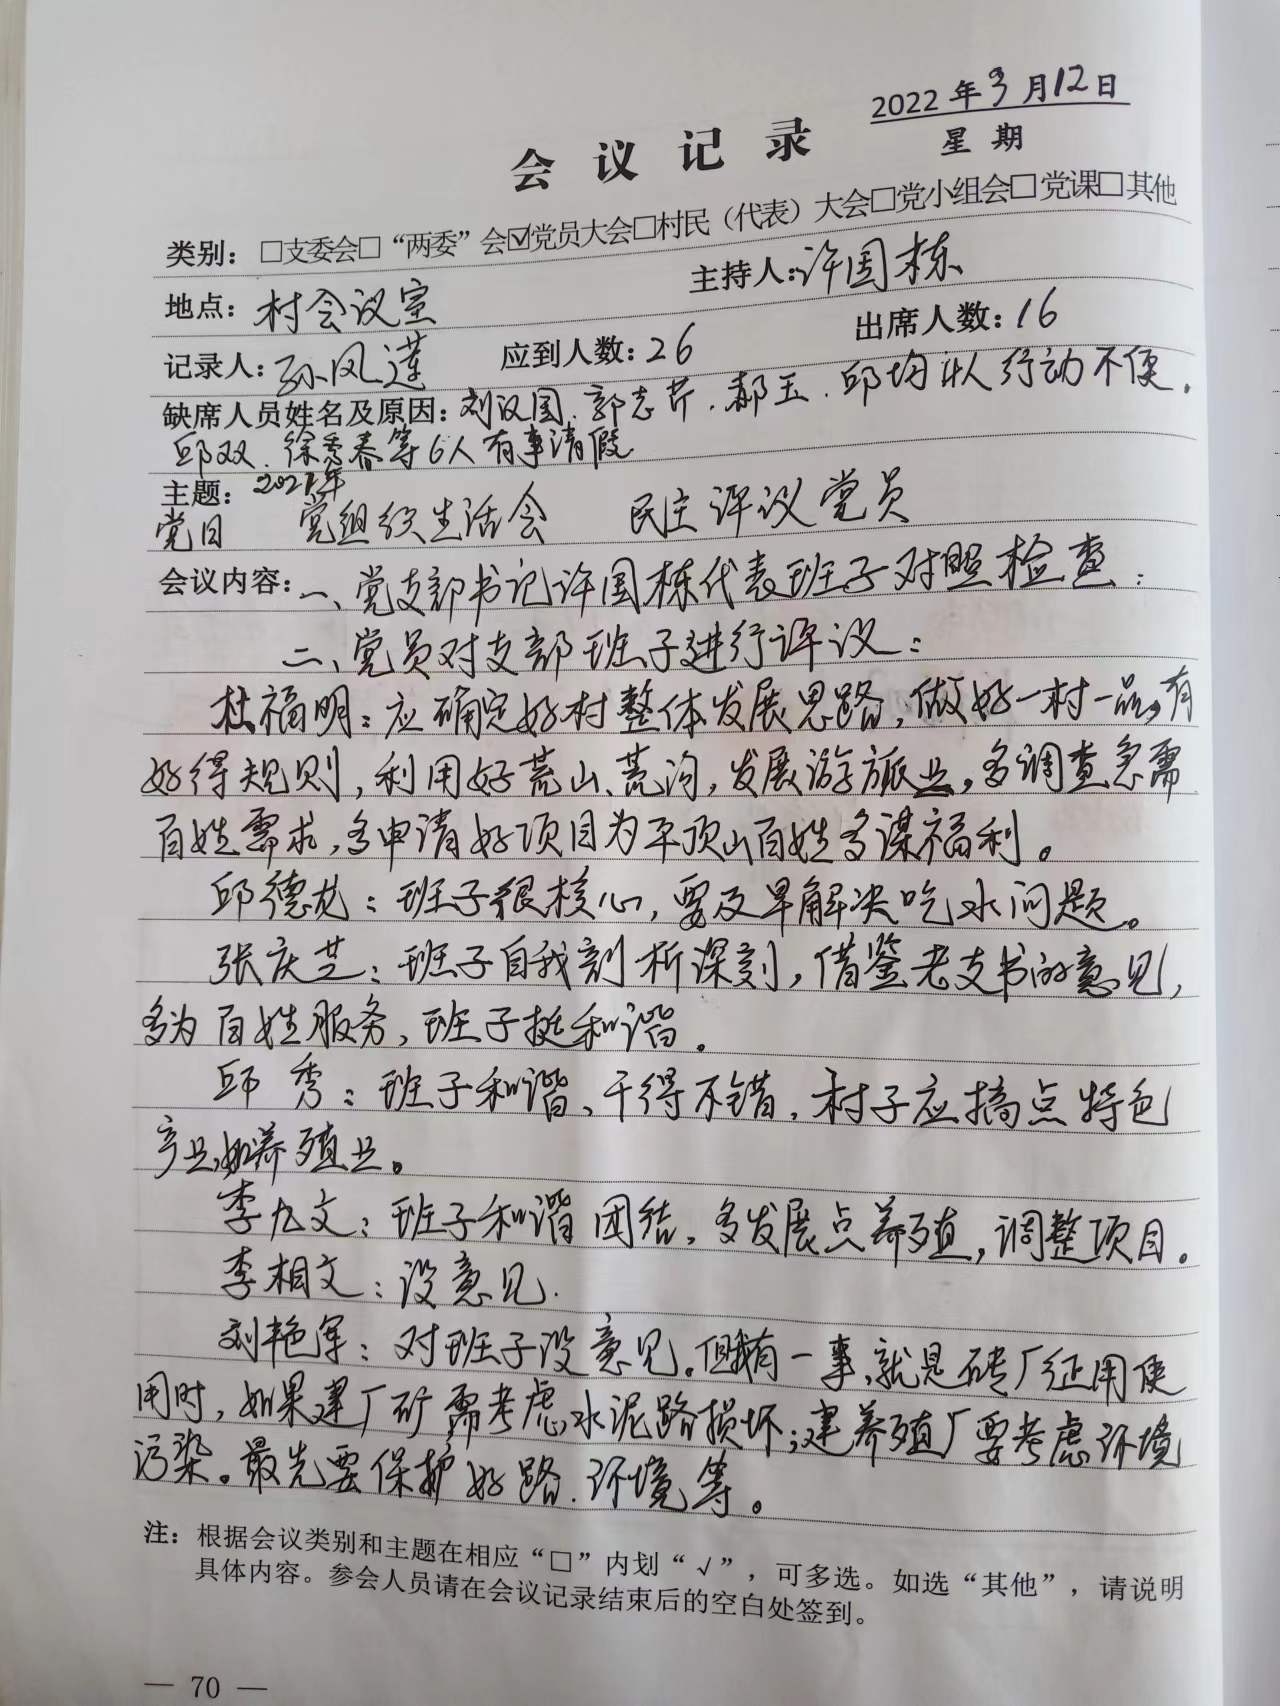 2022年3月12日
会议记录
星期
类别：□支委会□“两委”会☑党员大会□村民（代表）大会□党小组会□党课□其他
地点：村会议室 主持人：许国栋
记录人：孙凤莲 应到人数：26 出席人数：16
缺席人员姓名及原因：刘汉国.郭志芹.郝玉.邱均 行动不便.
邱双.徐秀春等6人有事请假
主题：2021年
党日 党组织生活会 民主评议党员
会议内容：一、党支部书记许国栋代表班子对照检查：
二、党员对支部班子进行评议：
杜福明：应确定好村整体发展思路，做好一村一品，有
好得规则，利用好荒山、荒沟，发展游旅业，多调查急需
百姓需求，多申请好项目为平顶山百姓多谋福利。
邱德龙：班子很核心，要及早解决吃水问题。
张庆芝：班子自我剖析深刻，借鉴老支书的意见，
多为百姓服务，班子挺和谐。
邱秀：班子和谐、干得不错，村子应搞点特色
产业，如养殖业。
李九文：班子和谐团结，多发展点养殖，调整项目。
李相文：没意见.
刘艳军：对班子没意见。但我有一事，就是砖厂征用使
用时，如果建厂矿需考虑水泥路损坏；建养殖厂要考虑环境
污染。最先要保护好路.环境等。
注：根据会议类别和主题在相应“□”内划“√”，可多选。如选“其他”，请说明
具体内容。参会人员请在会议记录结束后的空白处签到。
— 70 —